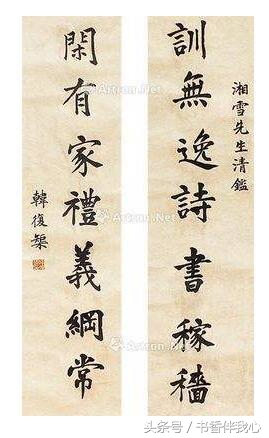 湘雪先生清鑑
訓無逸詩書稼穡
閑有家禮義綱常
韓復榘
Artron.Net
Artron.Net
Artron.Net
Artron.Net
头条号 / 书香伴我心